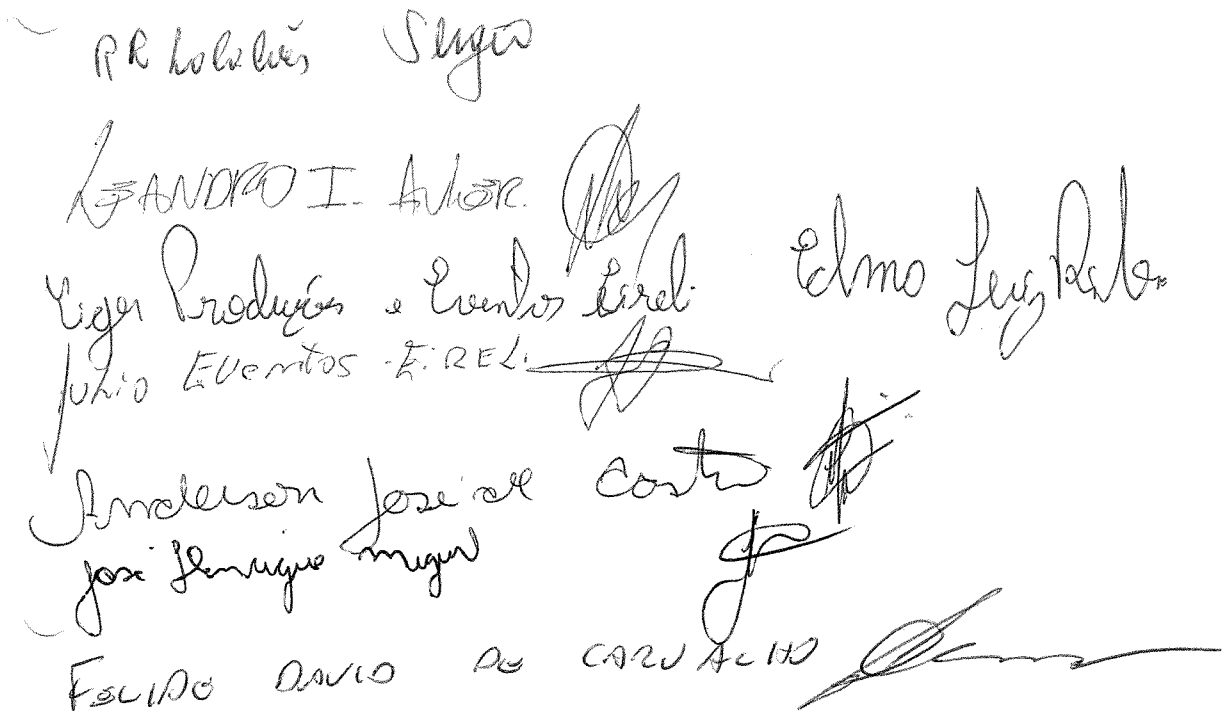 RR Sergio
LEANDRO I.
Produções e Eventos Eireli Elmo Luiz
Julio EVentos - EiRELi
Anderson José de Costa
José Henrique miguel
FELIPE DAVID DE CARVALHO